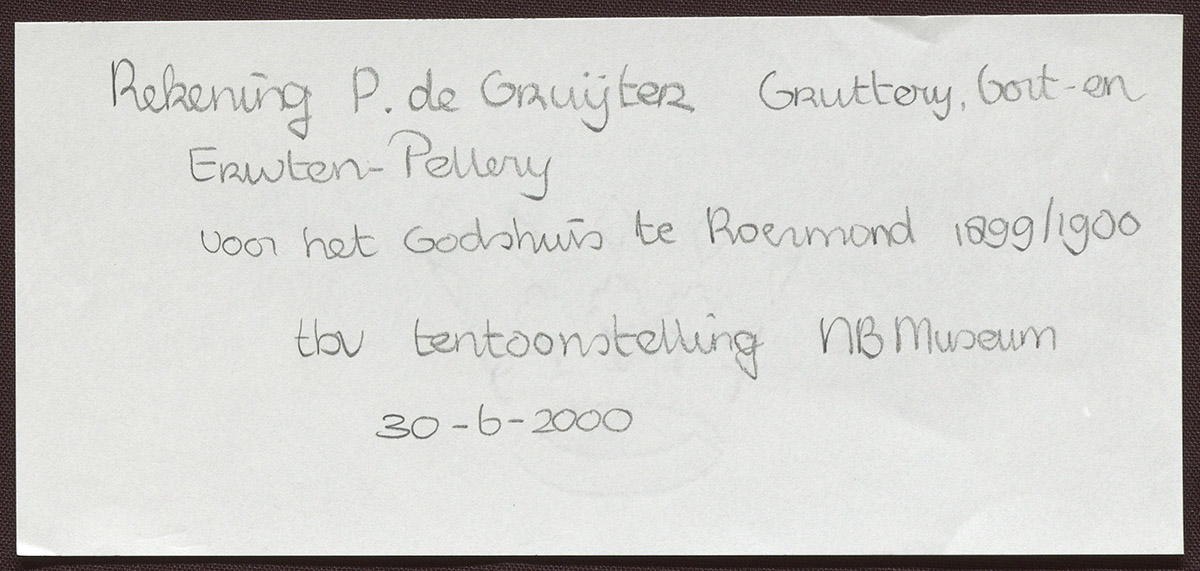 Rekening P. de Gruijter Gruttery, Gort-en
Erwten-Pellery
voor het Godshuis te Roermond 1899/1900
tbv tentoonstelling NB Museum
30-6-2000